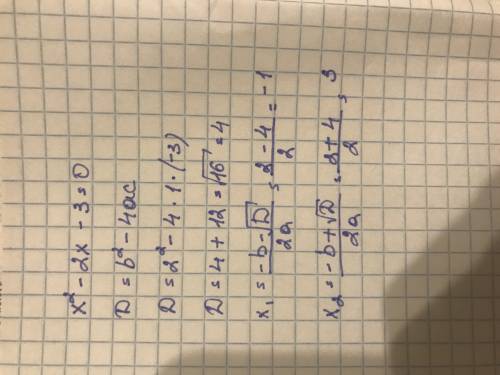 x² - 2x - 3 = 0
D = b² - 4ac
D = 2² - 4 · 1 · (-3)
D = 4 + 12 = √16 = 4
x₁ = (-b - √D)/2a = (2 - 4)/2 = -1
x₂ = (-b + √D)/2a = (2 + 4)/2 = 3